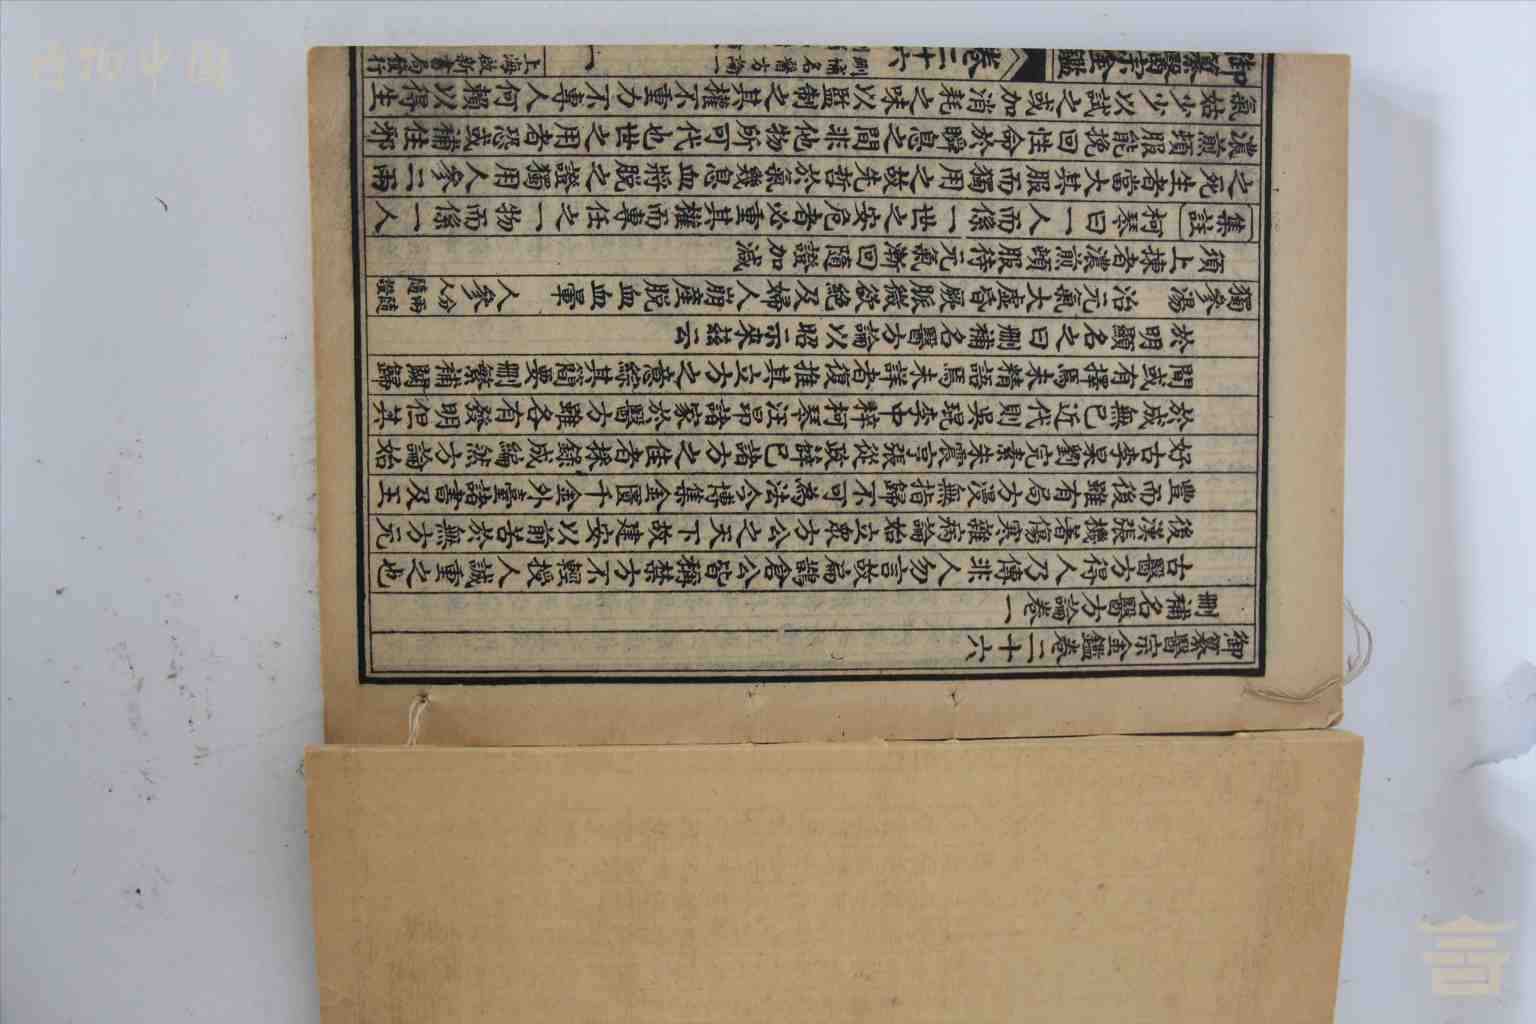 御纂醫宗金鑑卷二十六
刪補名醫方論卷一
古醫方得人乃傳非人勿言故扁鵲倉公皆稱禁方不輕授人誠重之也
後漢張機著傷寒雜病論始立眾方公之天下故建安以前苦於無方元
豐而後雖有局方漫無指歸不可為法今博集金匱千金外臺諸書及王
好古李杲劉完素朱震亨張從政薛己諸方之佳者採錄成編然方論始
於成無己近代則吳琨李中梓柯琴汪昂諸家於醫方雖各有發明但其
間或有擇焉未精語焉未詳者復推其立方之意綜其簡要刪繁補闕歸
於明顯名之曰刪補名醫方論以昭示來茲云
獨參湯 治元氣大虛昏厥脈微欲絕及婦人崩產脫血血暈 人參 分兩隨人隨證
須上揀者濃煎頓服待元氣漸回隨證加減
集註 柯琴曰一人而係一世之安危者必重其權而專任之一物而係一人
之死生者當大其服而獨用之故先哲於氣幾息血將脫之證獨用人參二兩
濃煎頓服能挽回性命於瞬息之間非他物所可代也世之用者恐或補住邪
氣姑少少以試之或加消耗之味以監制之其權不重力不專人何賴以得生
御纂醫宗金鑑 卷二十六 刪補名醫方論一 一 上海啟新書局發行